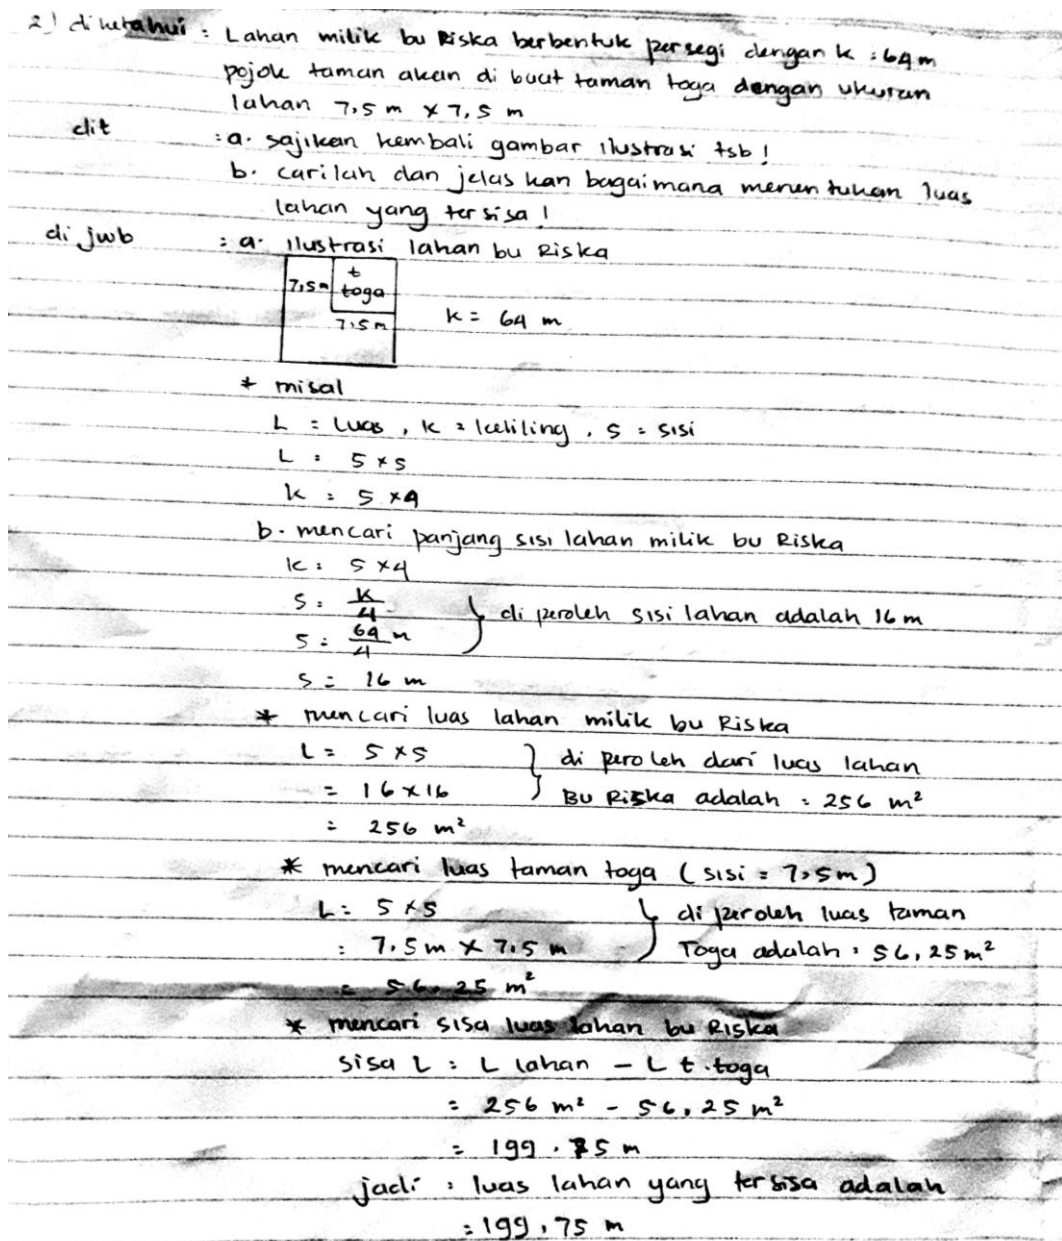 2) diketahui : Lahan milik bu Riska berbentuk persegi dengan k : 64 m
pojok taman akan di buat taman toga dengan ukuran
lahan 7,5 m x 7,5 m
dit : a. sajikan kembali gambar ilustrasi tsb !
b. carilah dan jelaskan bagaimana menentukan luas
lahan yang tersisa !
di jwb : a. ilustrasi lahan bu Riska
t
7,5 m toga
7,5 m
k = 64 m
* misal
L = Luas, k = keliling, s = sisi
L : s x s
k : s x 4
b. mencari panjang sisi lahan milik bu Riska
k : s x 4
s : k/4
s : 64/4 m
di peroleh sisi lahan adalah 16 m
s = 16 m
* mencari luas lahan milik bu Riska
L = s x s
= 16 x 16
= 256 m²
di peroleh dari luas lahan
Bu Riska adalah : 256 m²
* mencari luas taman toga (sisi = 7,5 m)
L = s x s
: 7.5 m x 7.5 m
= 56,25 m²
di peroleh luas taman
Toga adalah : 56,25 m²
* mencari sisa luas lahan bu Riska
sisa L : L lahan - L t.toga
= 256 m² - 56,25 m²
= 199.75 m
jadi : luas lahan yang tersisa adalah
: 199,75 m